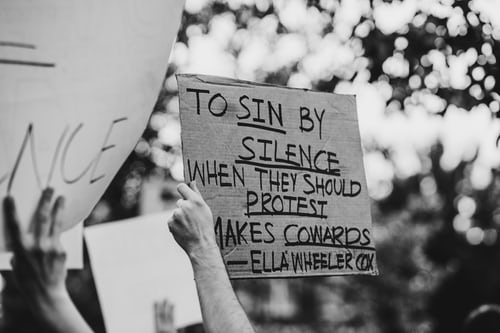 TO SIN BY
SILENCE
WHEN THEY SHOULD
PROTEST
MAKES COWARDS
—ELLA WHEELER COX